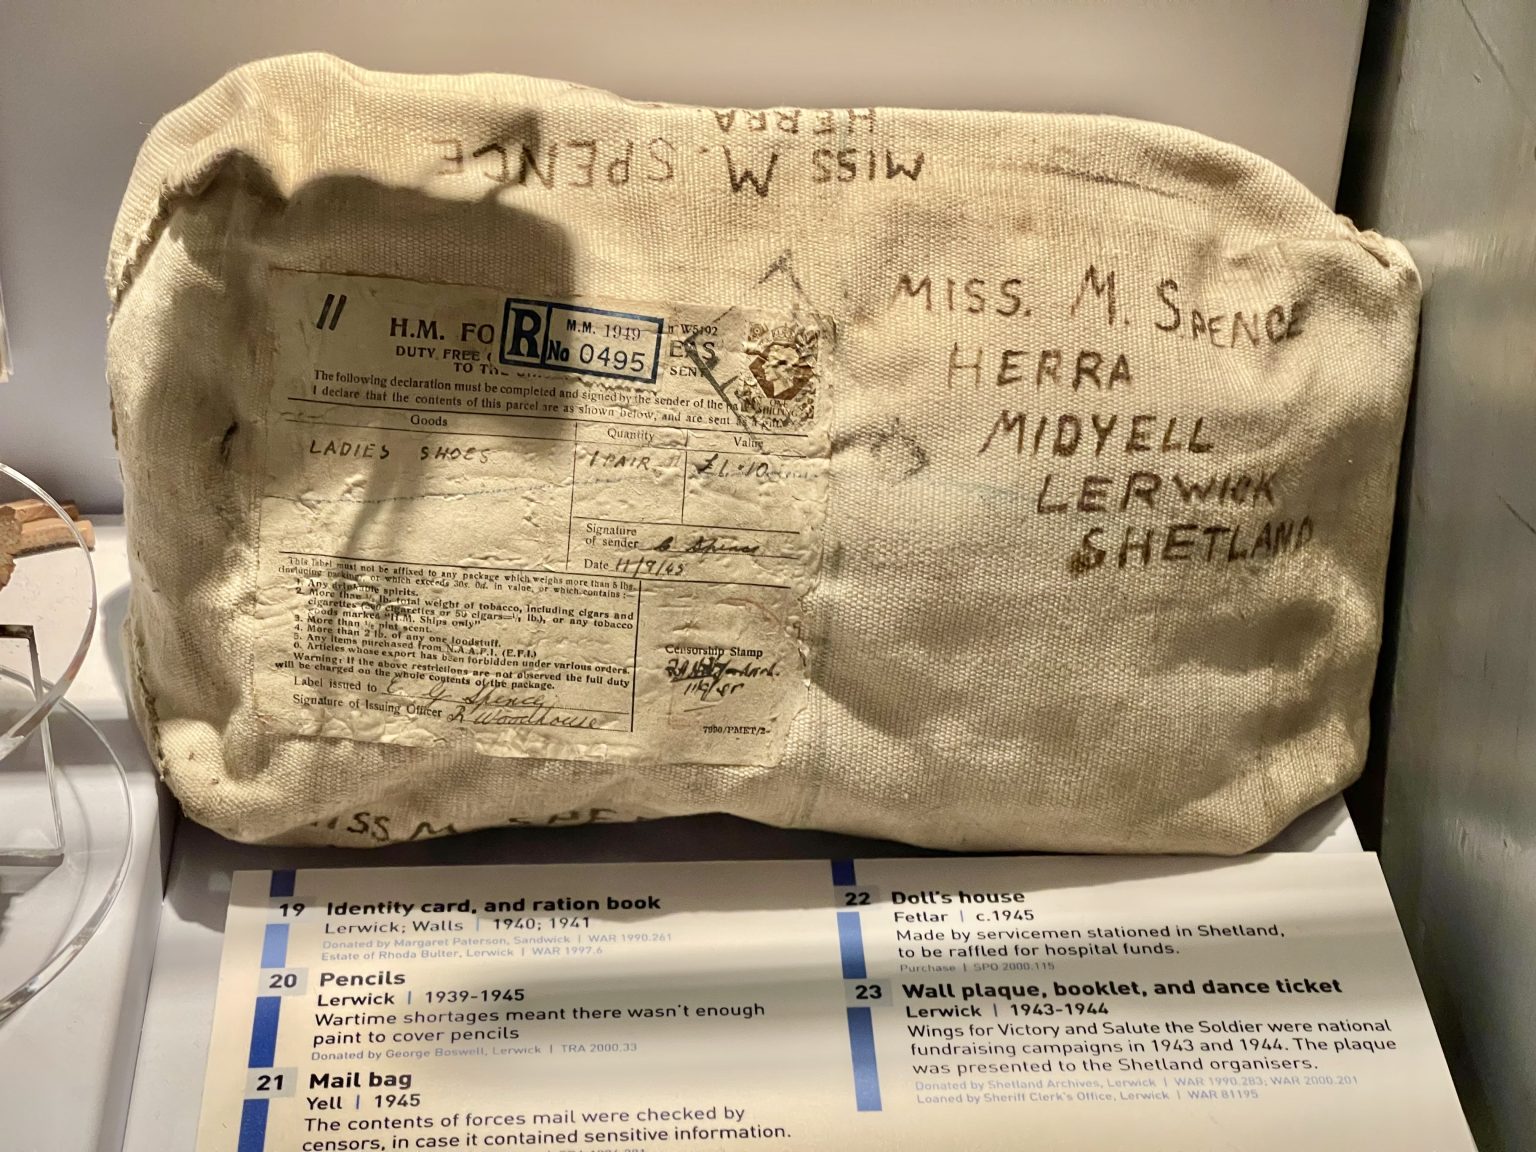 MISS M. SPENCE
HERRA
MISS. M. SPENCE
HERRA
MIDYELL
LERWICK
SHETLAND
H.M. FO
R
M.M. 1949
No 0495
W5192
DUTY FREE (
TO TH
SEN
The following declaration must be completed and signed by the sender of the
I declare that the contents of this parcel are as shown below, and are sent as a gift.
Goods Quantity Value
LADIES SHOES 1 PAIR £1.10
Signature
of sender Spence
Date 11/9/45
This label must not be affixed to any package which weighs more than 5 lbs.
(including packing), or which exceeds 30s. 0d. in value, or which contains :—
1. Any drinkable spirits.
2. More than ½ lb. total weight of tobacco, including cigars and
cigarettes (50 cigarettes or 50 cigars=¼ lb.), or any tobacco
goods marked "H.M. Ships only"
3. More than ½ pint scent.
4. More than 2 lb. of any one foodstuff.
5. Any items purchased from N.A.A.F.I. (E.F.I.)
6. Articles whose export has been forbidden under various orders.
Warning: If the above restrictions are not observed the full duty
will be charged on the whole contents of the package.
Label issued to E. G. Spence
Signature of Issuing Officer R Woodhouse
Censorship Stamp
7990/PMET/2-
MISS M. SPE
19 Identity card, and ration book
Lerwick; Walls | 1940; 1941
Donated by Margaret Paterson, Sandwick | WAR 1990.261
Estate of Rhoda Bulter, Lerwick | WAR 1997.6
20 Pencils
Lerwick | 1939-1945
Wartime shortages meant there wasn't enough
paint to cover pencils
Donated by George Boswell, Lerwick | TRA 2000.33
21 Mail bag
Yell | 1945
The contents of forces mail were checked by
censors, in case it contained sensitive information.
22 Doll's house
Fetlar | c.1945
Made by servicemen stationed in Shetland,
to be raffled for hospital funds.
Purchase | SPO 2000.115
23 Wall plaque, booklet, and dance ticket
Lerwick | 1943-1944
Wings for Victory and Salute the Soldier were national
fundraising campaigns in 1943 and 1944. The plaque
was presented to the Shetland organisers.
Donated by Shetland Archives, Lerwick | WAR 1990.283; WAR 2000.201
Loaned by Sheriff Clerk's Office, Lerwick | WAR 81195